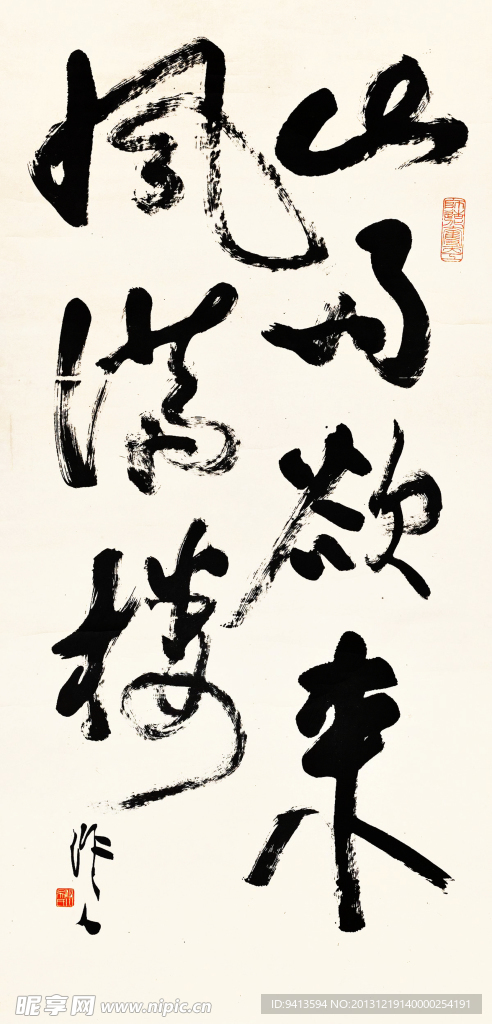 山雨欲来
风满楼
昵享网 www.nipic.cn
ID:9413594 NO:20131219140000254191